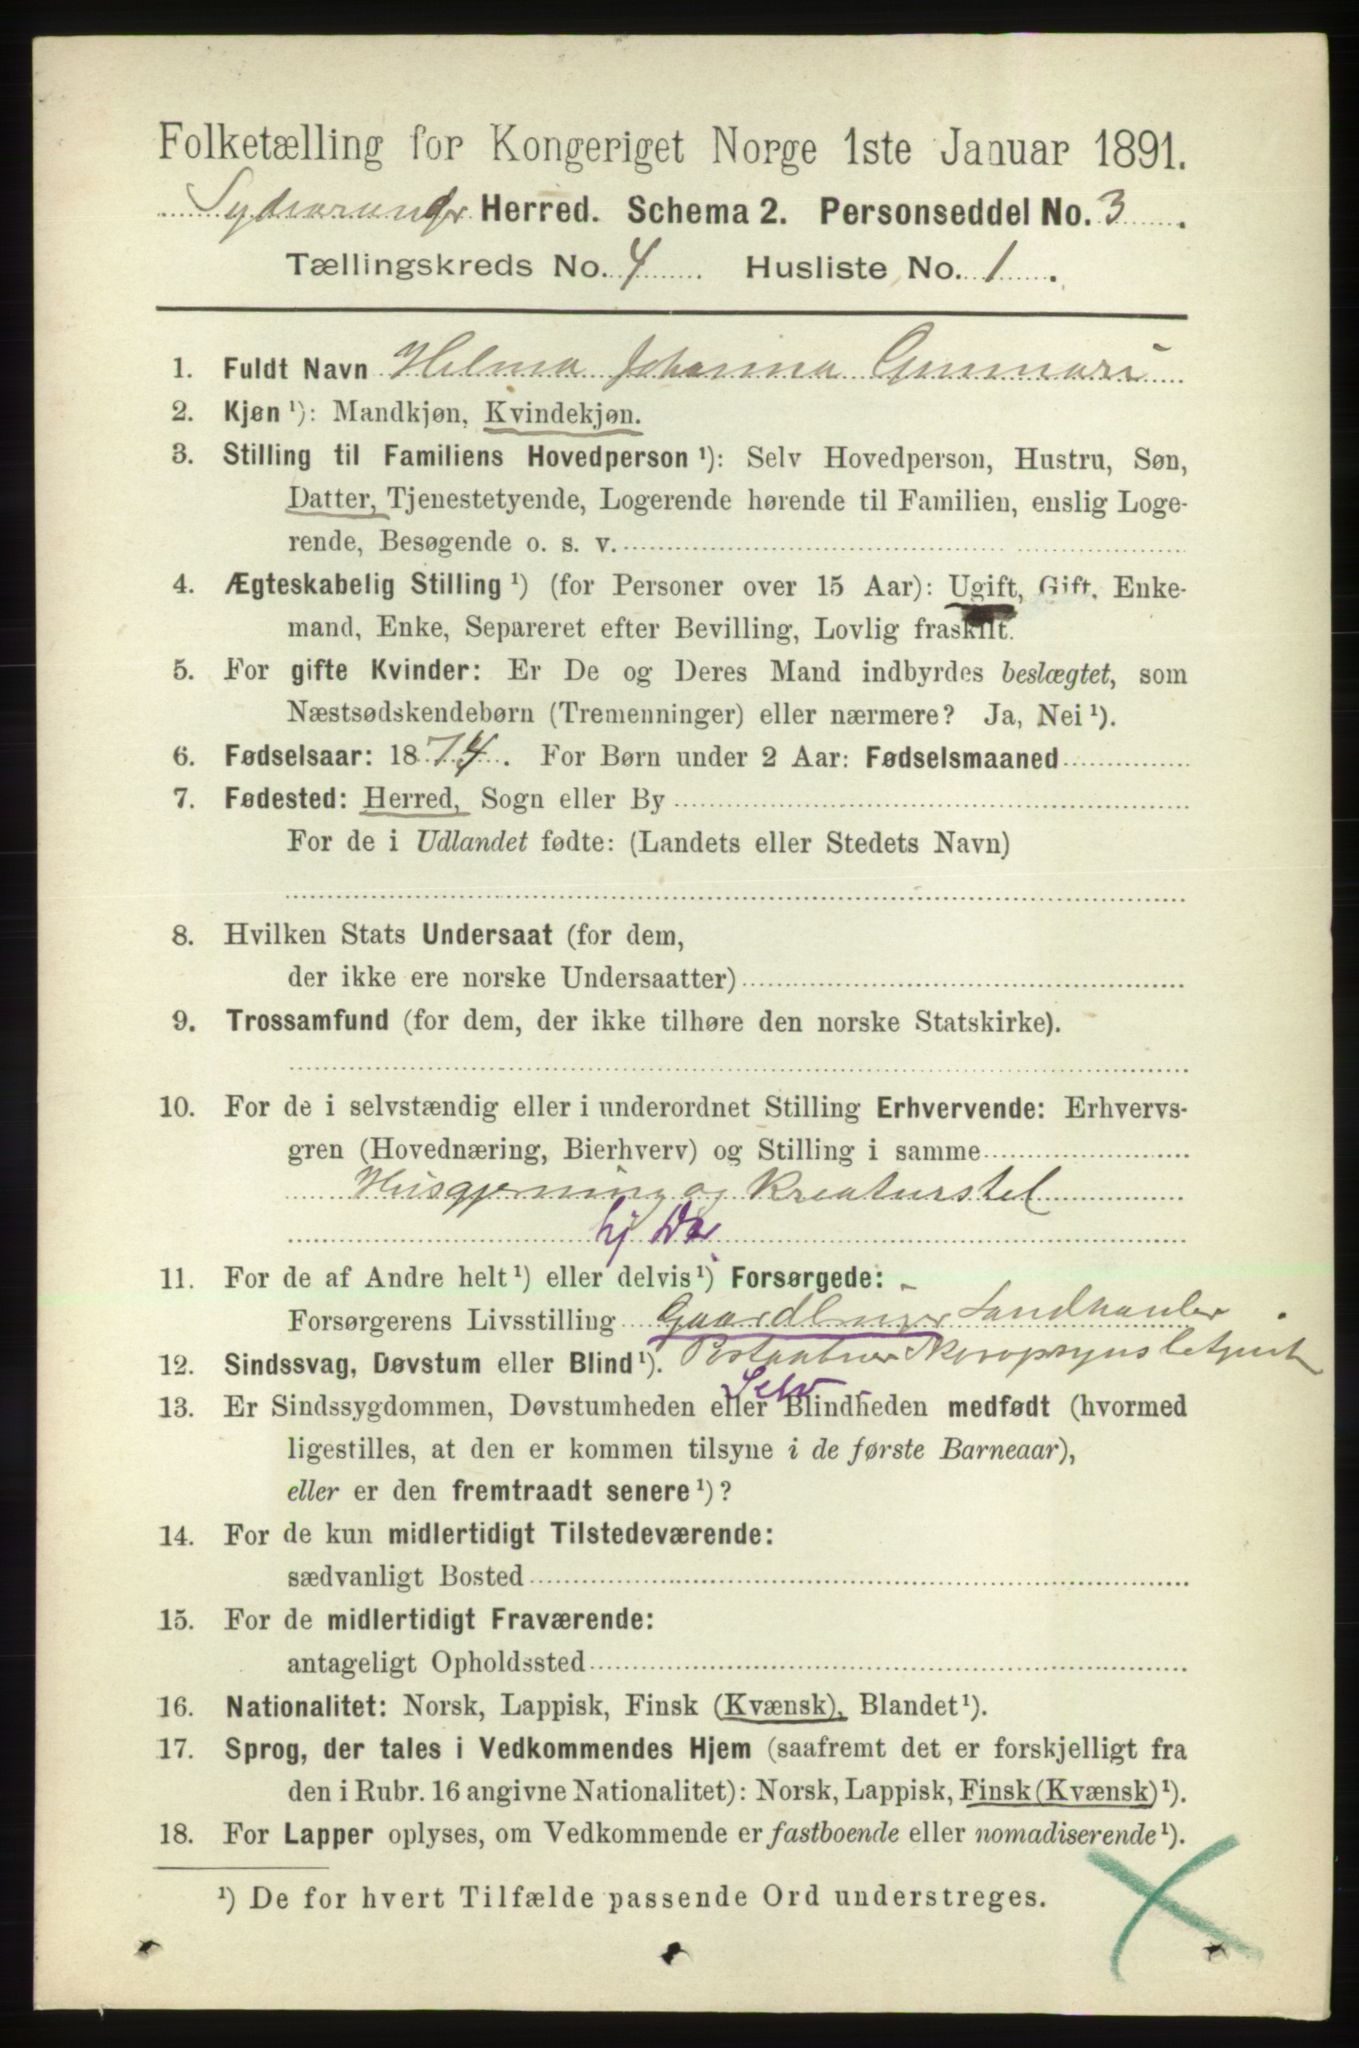 Folketælling for Kongeriget Norge 1ste Januar 1891.
Sydvaranger Herred. Schema 2. Personseddel No. 3.
Tællingskreds No. 4 Husliste No. 1.
1. Fuldt Navn Helma Johanna Gunnari
2. Kjøn ¹): Mandkjøn, Kvindekjøn.
3. Stilling til Familiens Hovedperson ¹): Selv Hovedperson, Hustru, Søn,
Datter, Tjenestetyende, Logerende hørende til Familien, enslig Loge-
rende, Besøgende o. s. v.
4. Ægteskabelig Stilling ¹) (for Personer over 15 Aar): Ugift, Gift, Enke-
mand, Enke, Separeret efter Bevilling, Lovlig fraskilt.
5. For gifte Kvinder: Er De og Deres Mand indbyrdes beslægtet, som
Næstsødskendebørn (Tremenninger) eller nærmere? Ja, Nei ¹).
6. Fødselsaar: 1874. For Børn under 2 Aar: Fødselsmaaned
7. Fødested: Herred, Sogn eller By
For de i Udlandet fødte: (Landets eller Stedets Navn)
8. Hvilken Stats Undersaat (for dem,
der ikke ere norske Undersaatter)
9. Trossamfund (for dem, der ikke tilhøre den norske Statskirke).
10. For de i selvstændig eller i underordnet Stilling Erhvervende: Erhvervs-
gren (Hovednæring, Bierhverv) og Stilling i samme
Husgjerning og Kreaturstel
hj Da
11. For de af Andre helt ¹) eller delvis ¹) Forsørgede:
Forsørgerens Livsstilling Gaardbruger Landhandler
12. Sindssvag, Døvstum eller Blind ¹). Postaabner Skovopsynsbetjent
Selv
13. Er Sindssygdommen, Døvstumheden eller Blindheden medfødt (hvormed
ligestilles, at den er kommen tilsyne i de første Barneaar),
eller er den fremtraadt senere ¹)?
14. For de kun midlertidigt Tilstedeværende:
sædvanligt Bosted
15. For de midlertidigt Fraværende:
antageligt Opholdssted
16. Nationalitet: Norsk, Lappisk, Finsk (Kvænsk), Blandet ¹).
17. Sprog, der tales i Vedkommendes Hjem (saafremt det er forskjelligt fra
den i Rubr. 16 angivne Nationalitet): Norsk, Lappisk, Finsk (Kvænsk) ¹).
18. For Lapper oplyses, om Vedkommende er fastboende eller nomadiserende ¹).
¹) De for hvert Tilfælde passende Ord understreges.